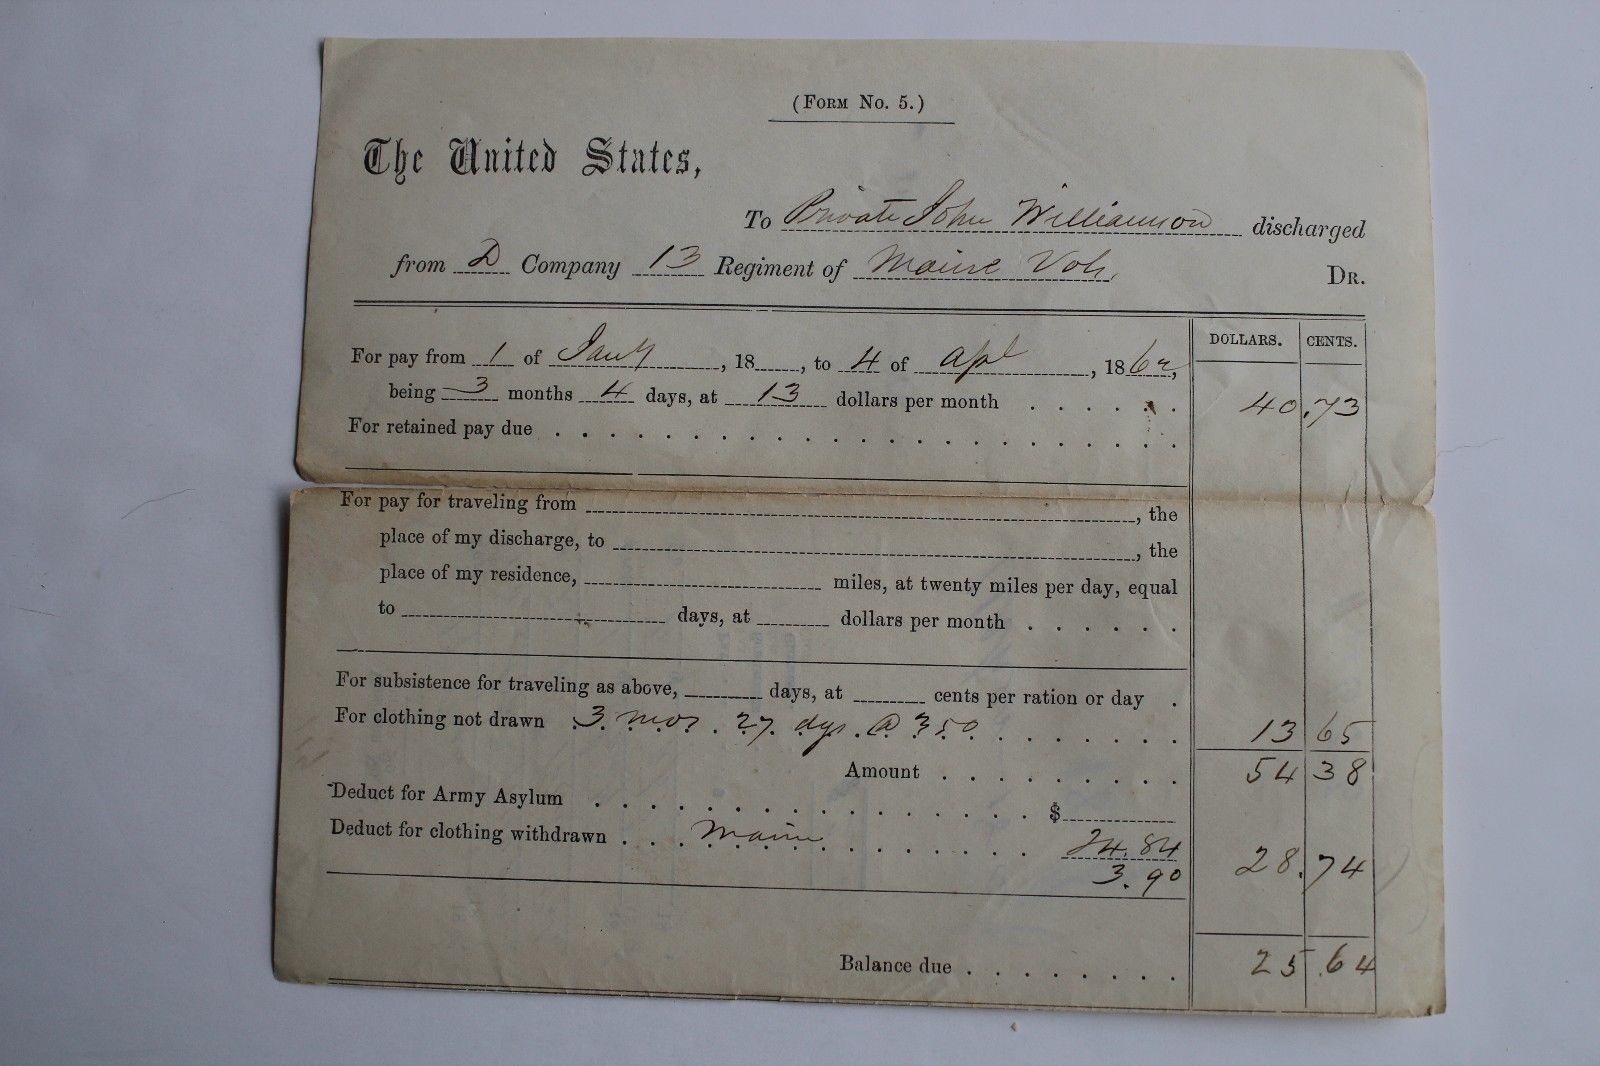 (FORM No. 5.)
The United States,
To Private John Williamson discharged
from D Company 13 Regiment of Maine Vols. DR.
DOLLARS. CENTS.
For pay from 1 of Jany, 18, to 4 of apl, 1862,
being 3 months 4 days, at 13 dollars per month . . . . . . 40.73
For retained pay due . . . . . . . . . . . . . . . . . . . . . . .
For pay for traveling from , the
place of my discharge, to , the
place of my residence, miles, at twenty miles per day, equal
to days, at dollars per month . . . . . .
For subsistence for traveling as above, days, at cents per ration or day .
For clothing not drawn 3 mos. 27 dys. @ 3 50 . . . . . . . 13 65
Amount . . . . . . . . . 54 38
Deduct for Army Asylum . . . . . . . . . . . . . . . . $
Deduct for clothing withdrawn . . . Maine . . . . . . . 24.84
3.90 28.74
Balance due . . . . . . . . 25.64